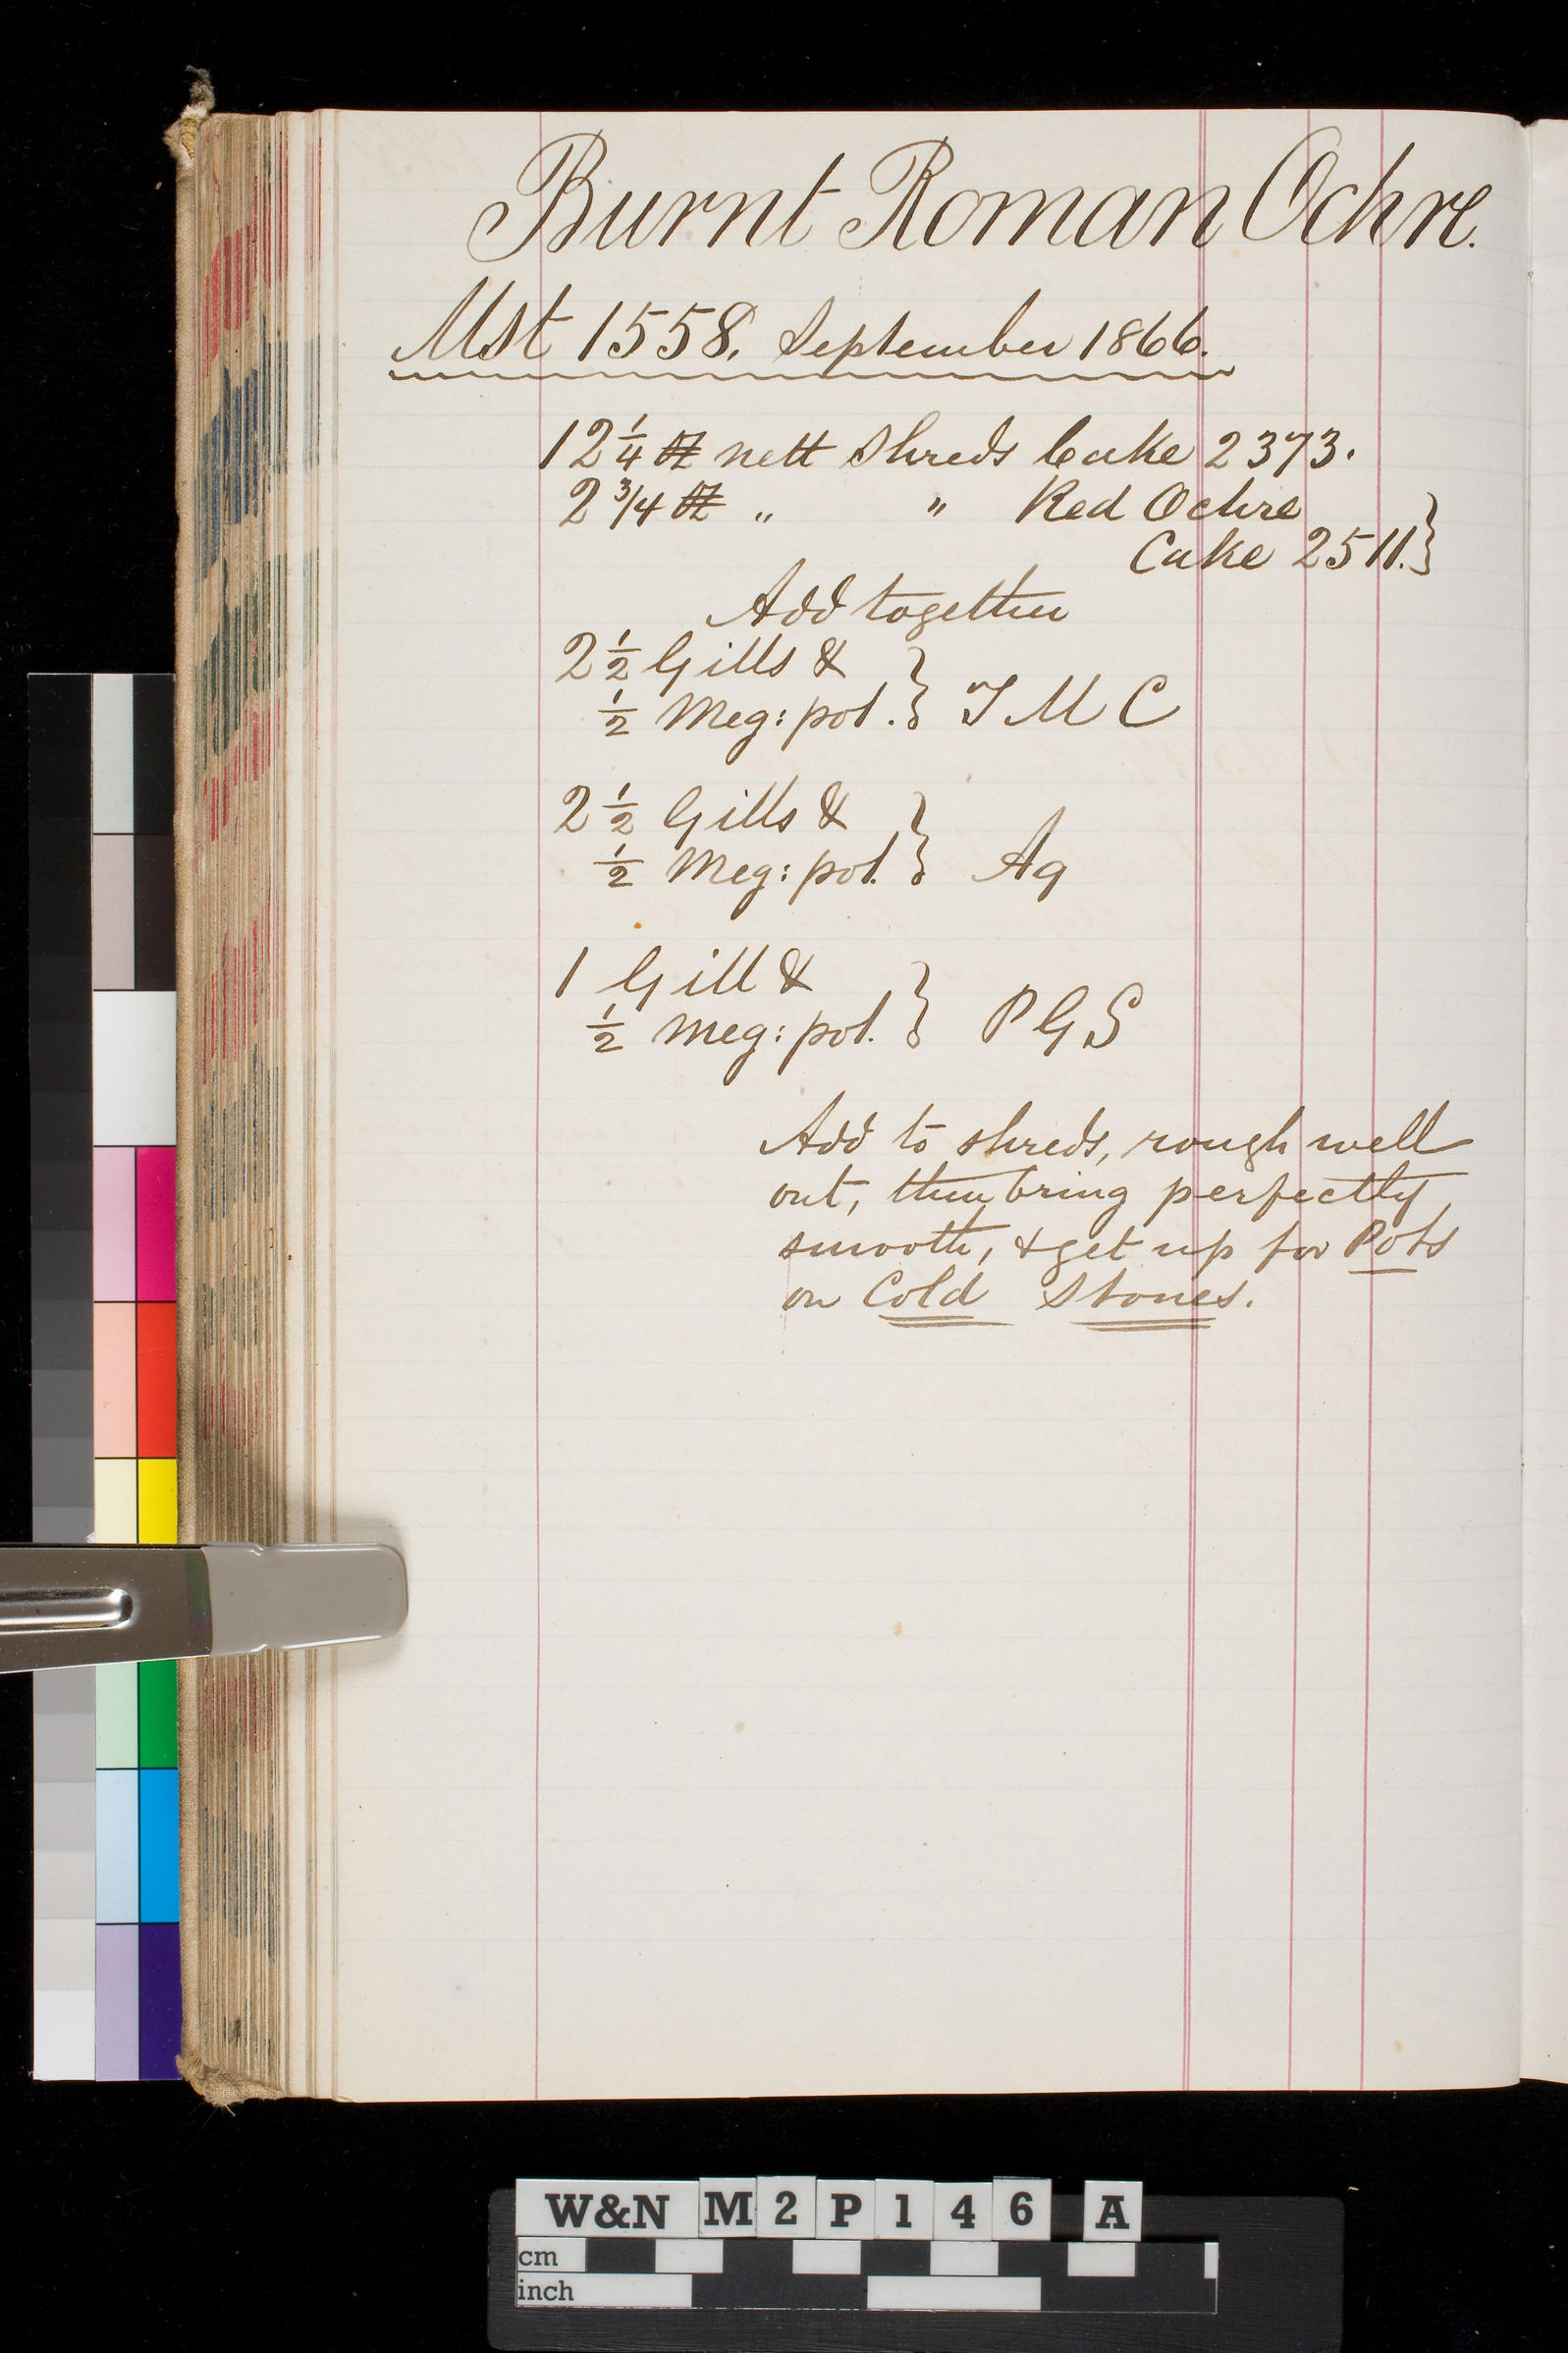 Burnt Roman Ochre.
Mst 1558. September 1866.
12 1/4 ℔ nett Shreds Cake 2373.
2 3/4 ℔ " " Red Ochre
Cake 2511.}
Add together
2 1/2 Gills &
1/2 Meg: pot. } T M C
2 1/2 Gills &
1/2 Meg: pot. } Aq
1 Gill &
1/2 Meg: pot. } P G S
Add to shreds, rough well
out, then bring perfectly
smooth, & get up for Pots
on Cold Stones.
W&N M2P146 A
cm
inch